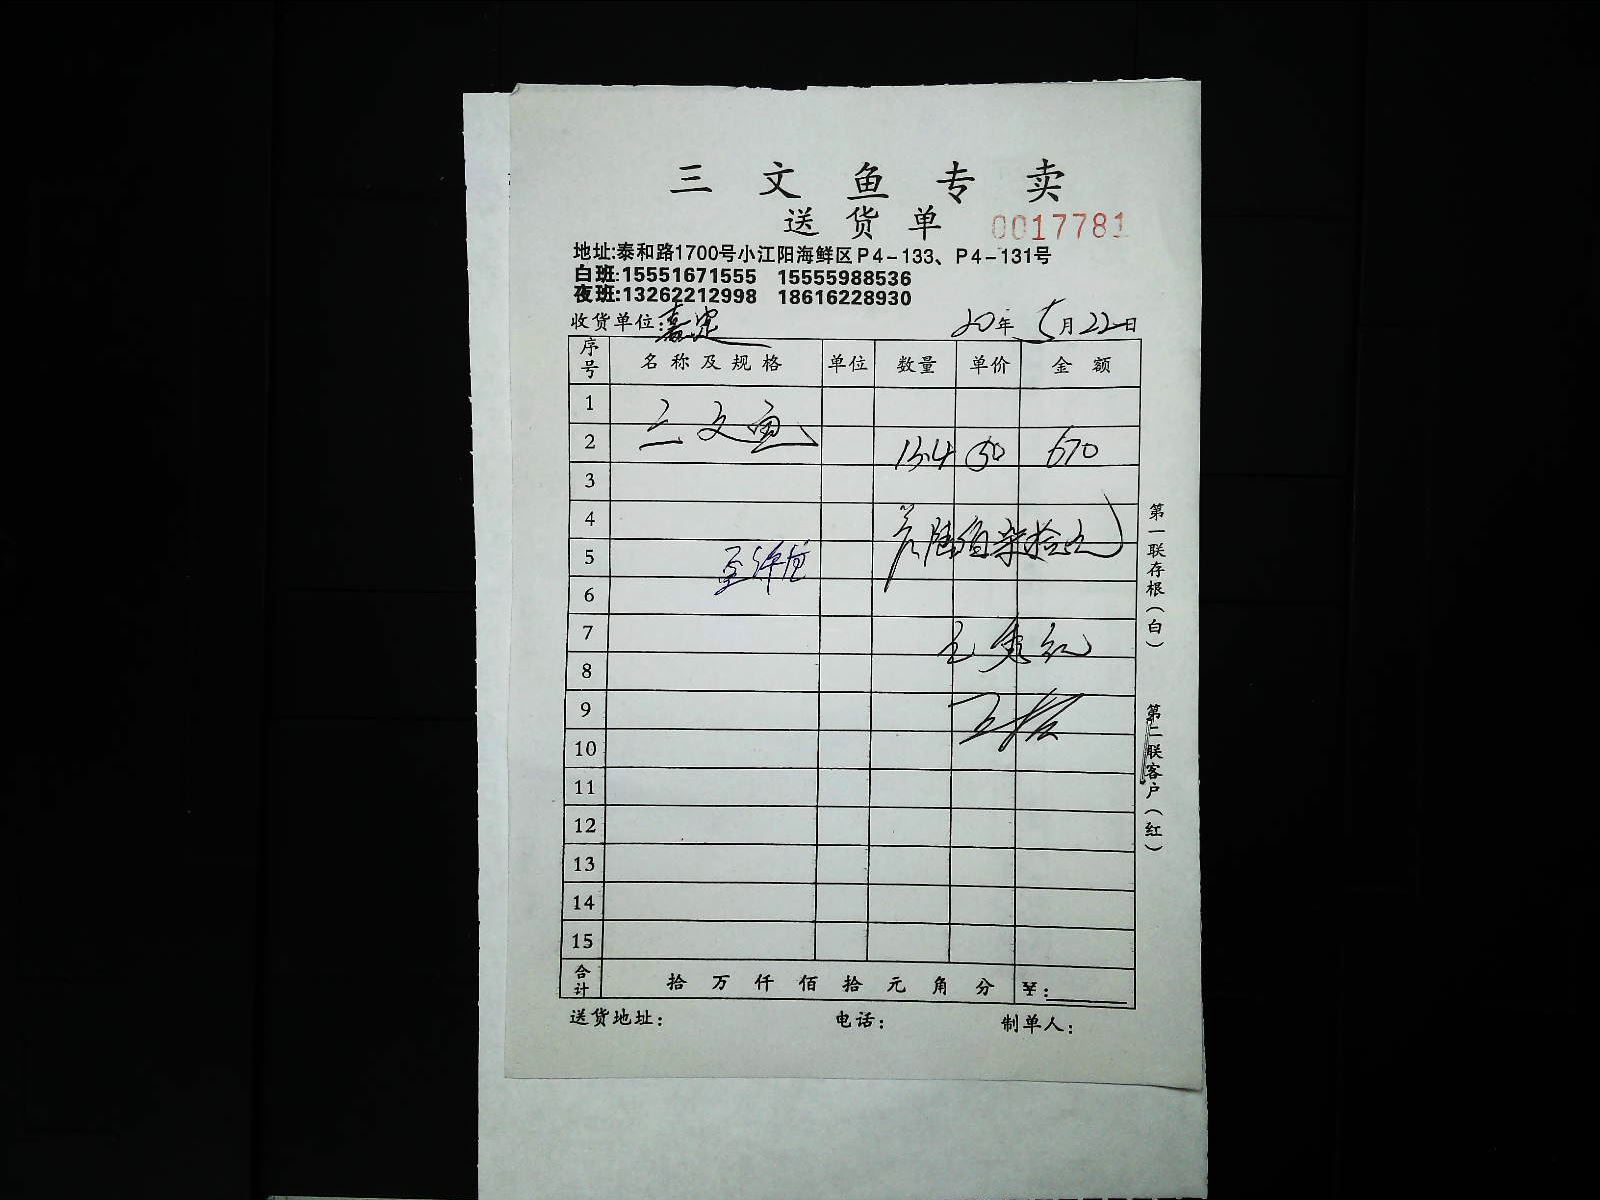 三文鱼专卖
送货单 0017781
地址:泰和路1700号小江阳海鲜区P4-133、P4-131号
白班:15551671555 15555988536
夜班:13262212998 18616228930
收货单位:嘉定 20年5月22日
序号 名称及规格 单位 数量 单价 金额
1
三文鱼
2 13.4 50 670
3
4
陆佰柒拾元
5
6
7
8
9
10
11
12
13
14
15
合计 拾万仟佰拾元角分 ¥:
送货地址: 电话: 制单人:
第一联存根(白)
第二联客户(红)